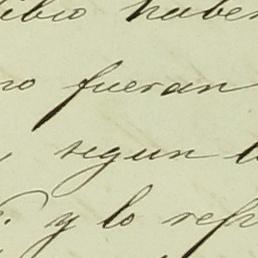 haber
no fueran
, segun
y lo rep